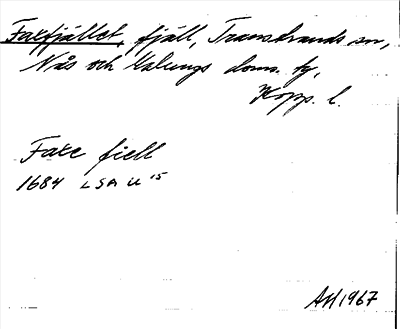 Faxfjället, fjäll, Transtrands sn,
Nås och Malungs doms. tg,
Kopp. l.
Faxe fiell
1684 LSA U 15
AH 1967